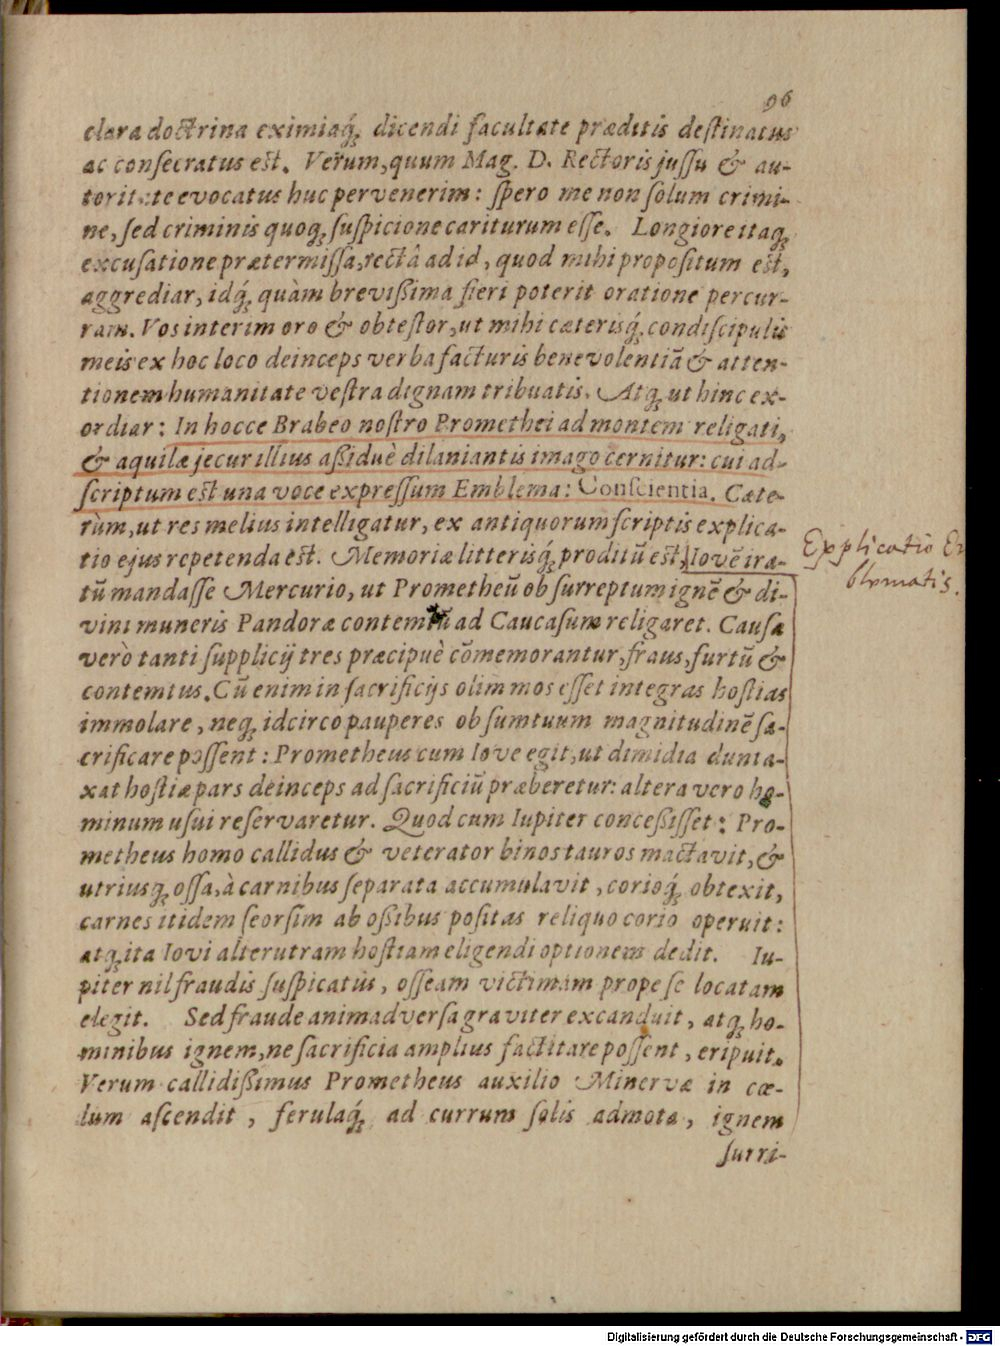 96
clara doctrina eximiaq́; dicendi facultate præditis destinatus
ac consecratus est. Verùm, quum Mag. D. Rectoris jussu & au-
toritate evocatus huc pervenerim: spero me non solum crimi-
ne, sed criminis quoq; suspicione cariturum esse. Longiore itaq;
excusatione prætermissa, rectâ ad id, quod mihi propositum est,
aggrediar, idq́; quàm brevißima fieri poterit oratione percur-
ram. Vos interim oro & obtestor, ut mihi cæterisq́; condiscipulis
meis ex hoc loco deinceps verba facturis benevolentiā & atten-
tionem humanitate vestra dignam tribuatis. Atq; ut hinc ex-
ordiar: In hocce Brabeo nostro Promethei ad montem religati,
& aquilæ jecur illius aßiduè dilaniantis imago cernitur: cui ad-
scriptum est una voce expressum Emblema: Conscientia. Cæte-
rùm, ut res melius intelligatur, ex antiquorum scriptis explica-
tio ejus repetenda est. Memoriæ litterisq́; proditū est, Iovē ira-
tū mandasse Mercurio, ut Prometheū ob surreptum ignē & di-
vini muneris Pandoræ contemtū ad Caucasum religaret. Causæ
verò tanti supplicij tres præcipuè cōmemorantur, fraus, furtū &
contemtus. Cū enim in sacrificijs olim mos esset integras hostias
immolare, neq; idcirco pauperes ob sumtuum magnitudinē sa-
crificare possent: Prometheus cum Iove egit, ut dimidia dunta-
xat hostiæ pars deinceps ad sacrificiū præberetur: altera vero ho-
minum usui reservaretur. Quod cum Iupiter conceßisset: Pro-
metheus homo callidus & veterator binos tauros mactavit, &
utriusq; ossa, à carnibus separata accumulavit, corioq́; obtexit,
carnes itidem seorsim ab oßibus positas reliquo corio operuit:
atq; ita Iovi alterutram hostiam eligendi optionem dedit. Iu-
piter nil fraudis suspicatus, osseam victimam prope se locatam
elegit. Sed fraude animadversa graviter excanduit, atq; ho-
minibus ignem, ne sacrificia amplius factitare possent, eripuit.
Verum callidißimus Prometheus auxilio Minervæ in cœ-
lum ascendit, ferulaq́; ad currum solis admota, ignem
surri-
Explicatio Em
blematis.
Digitalisierung gefördert durch die Deutsche Forschungsgemeinschaft - DFG